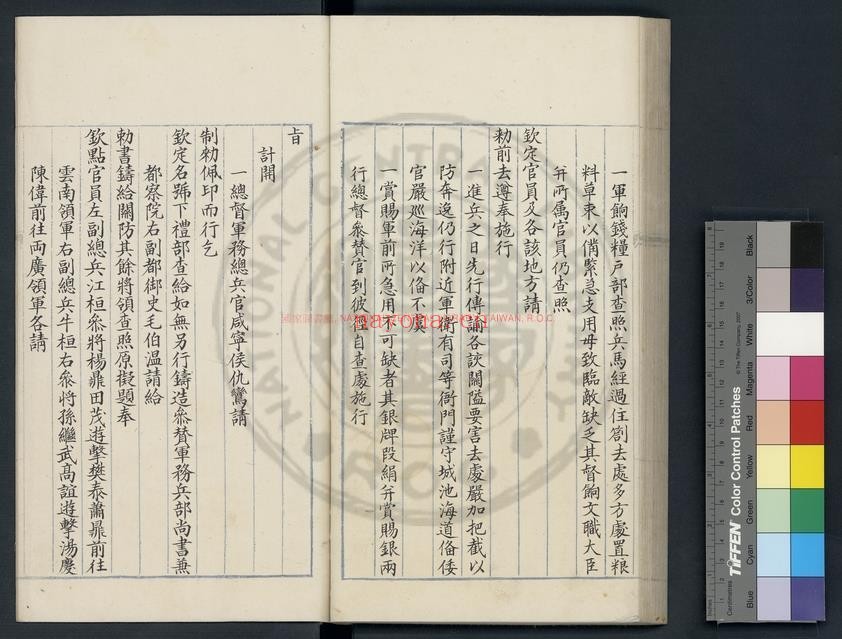 一軍餉錢糧戶部查照兵馬經過住劄去處多方處置粮
料草束以備緊急支用毋致臨敵缺乏其督餉文職大臣
并所属官員仍查照
欽定官員及各該地方請
勑前去遵奉施行
一進兵之日先行傳諭各該關隘要害去處嚴加把截以
防奔逸仍行附近軍衛有司等衙門謹守城池海道俻倭
官嚴巡海洋以俻不虞
一賞賜軍前所急用不可缺者其銀牌段絹并賞賜銀兩
行總督叅賛官到彼徑自查處施行
旨
計開
一總督軍務總兵官咸寧侯仇鸞請
制勑佩印而行乞
欽定名號下禮部查給如無另行鑄造叅賛軍務兵部尚書兼
都察院右副都御史毛伯溫請給
勅書鑄給關防其餘將領查照原擬題奉
欽點官員左副總兵江桓叅將楊鼐田茂遊擊樊泰蕭鼐前往
雲南領軍右副總兵牛桓右叅將孫繼武高誼遊擊湯慶
陳偉前往兩廣領軍各請
NATIONAL CENTRAL LIBRARY, TAIWAN, R.O.C.
TIFFEN Color Control Patches
© The Tiffen Company, 2007
Centimetres
Inches
Blue
Cyan
Green
Yellow
Red
Magenta
White
3/Color
Black